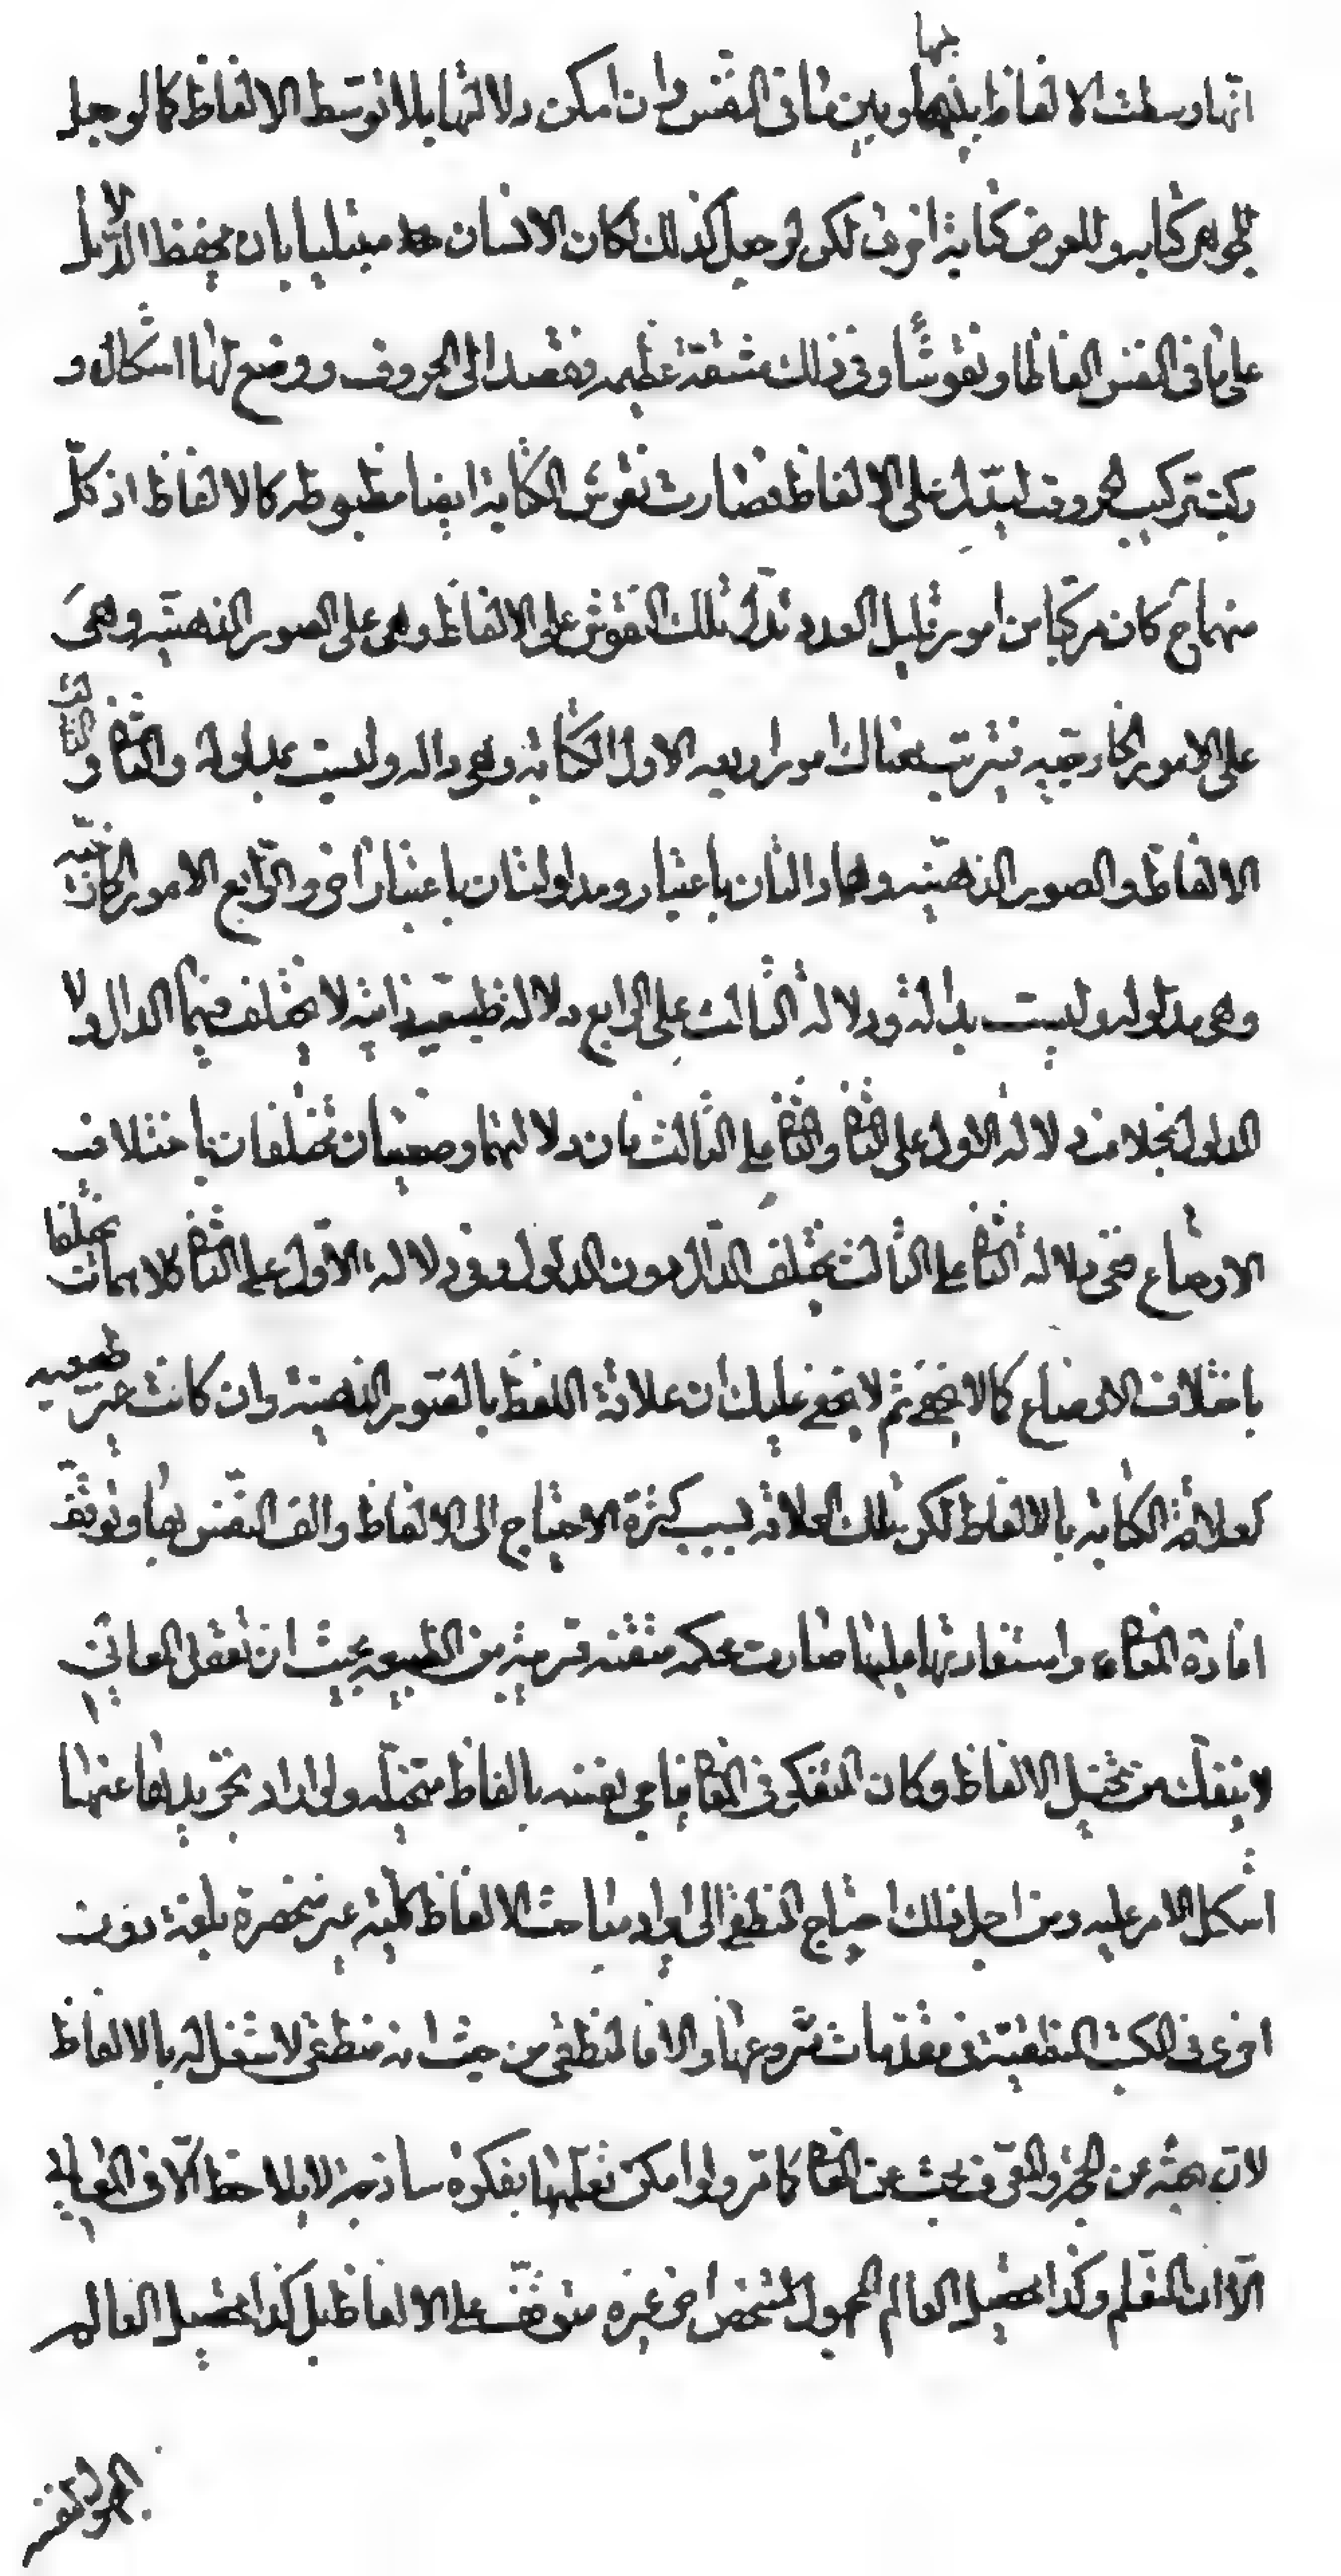 انّها وسطت الالفاظ بينها وبين ما فى النفس وان امكن دلالتها بلا توسّط الالفاظ كما لو جعل
للجوهر كتابه وللعرض كتابة اخرى لكن لو جعل كذلك لكان الانسان مبتليا بان يحفظ الدلايل
على ما فى النفس الفاظا ونقوشًا وفى ذلك مشقة عظيمه فقصد الى الحروف ووضع لها اشكال و
ركبت تركيب الحروف ليدلّ على الالفاظ فصارت نقوش الكتابة ايضا مضبوطه كالالفاظ اذ كلّ
منهما ح كان مركبا من امور قليل العدد تدلّ تلك النقوش على الالفاظ وهى على الصور الذهنيّه وهى
على الامور الخارجيه فترتب هناك امور اربعه الاول الكتابة وهو داله وليست مدلولة والثانى و الثالث
الالفاظ والصور الذهنيّه وهما دالتان باعتبار ومدلولتان باعتبار اخر والرّابع الامور الخارجيّه
وهو مدلوله وليست بدالة ودلالة الثالث على الرابع دلالة طبيعيّة ذاتية لا يختلف فيها الدال ولا
المدلول بخلاف دلالة الاول على الثانى والثانى على الثالث فان دلالتهما وضعيتان تختلفان باختلاف
الاوضاع ففى دلالة الثانى على الثالث يختلف الدّال دون المدلول وفى دلالة الاوّل على الثانى كلاهما يختلفان
باختلاف الاوضاع كما لا يخفى ثم لا يخفى عليك ان علاقة اللفظ بالصّور الذهنية وان كانت غير طبيعيه
كعلاقة الكتابة بالالفاظ لكن تلك العلاقه بسبب كثرة الاحتياج الى الالفاظ والف النّفس بها وتوقّف
افادة المعانى واستفادتها عليها صارت محكمه متقنه قريبة من الطّبيعه بحيث ان تعقل المعانى
لا ينفك عن تخيل الالفاظ وكان المتفكر فى المعانى يناجى نفسه بالفاظ متخيّله ولو اراد تجريدها عنها
اشكل الامر عليه ومن اجل ذلك احتياج المنطقى الى ايراد مباحث الالفاظ كليّة غير منحصرة بلغة دون
اخرى فى الكتب المنطقيّة فى مقدمات شروعها والا فالمنطقى من حيث انه منطقى لا شغل له بالالفاظ
لان بحثه عن الحجة والمعرّف بحث عن المعانى كما مر ولو امكن تعلمها بفكرة ساذجة لا يلاحظ الّا فى المعانى
الّا ان التعلم وكذا تحصيل العالم المجهول لشخص اخر غيره متوقّف على الالفاظ بل كذا تحصيل العالم
المجهول لنفسه